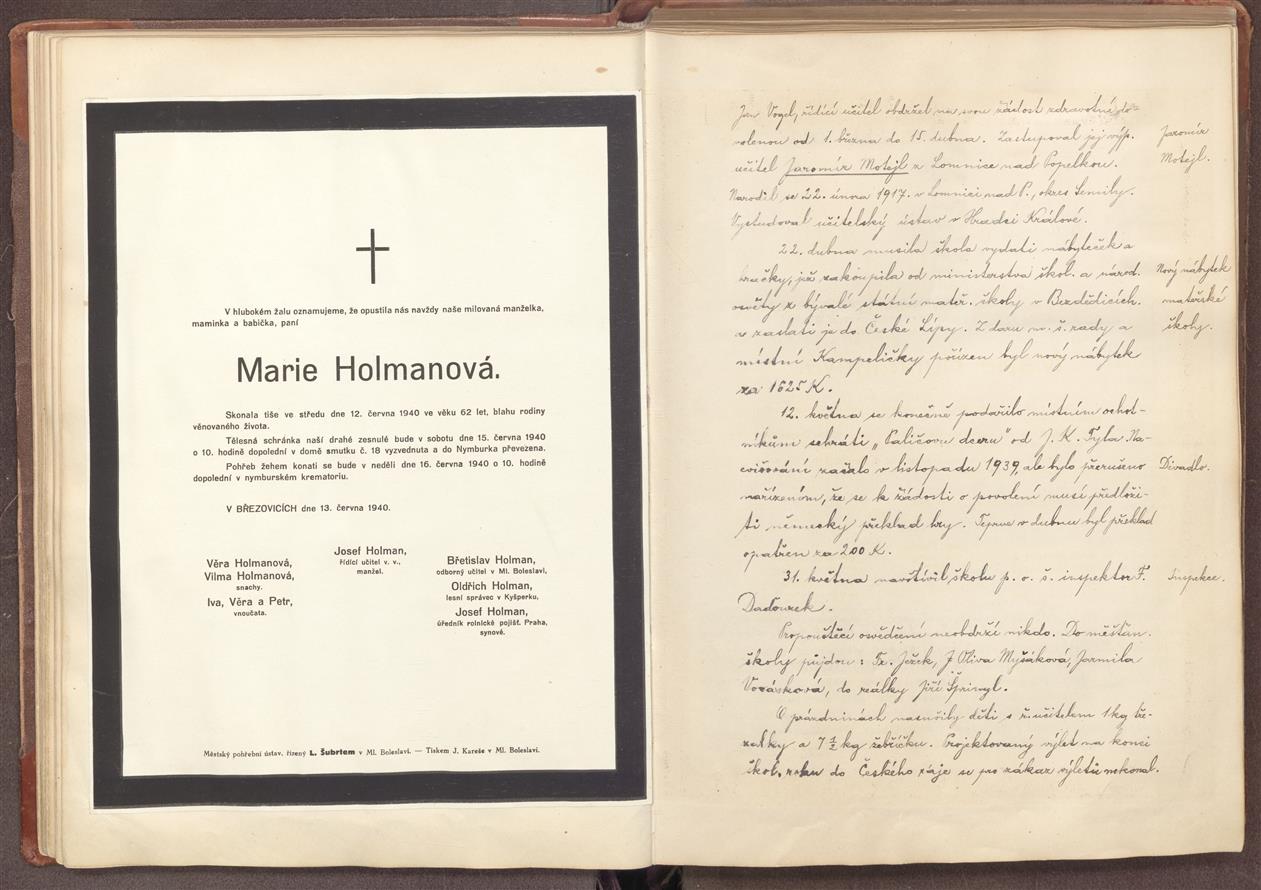 V hlubokém žalu oznamujeme, že opustila nás navždy naše milovaná manželka,
maminka a babička, paní
Marie Holmanová.
Skonala tiše ve středu dne 12. června 1940 ve věku 62 let, blahu rodiny
věnovaného života.
Tělesná schránka naší drahé zesnulé bude v sobotu dne 15. června 1940
o 10. hodině dopolední v domě smutku č. 18 vyzvednuta a do Nymburka převezena.
Pohřeb žehem konati se bude v neděli dne 16. června 1940 o 10. hodině
dopolední v nymburském krematoriu.
V BŘEZOVICÍCH dne 13. června 1940.
Věra Holmanová,
Vilma Holmanová,
snachy.
Iva, Věra a Petr,
vnoučata.
Josef Holman,
řídící učitel v. v.,
manžel.
Břetislav Holman,
odborný učitel v Ml. Boleslavi,
Oldřich Holman,
lesní správec v Kyšperku,
Josef Holman,
úředník rolnické pojišť. Praha,
synové.
Městský pohřební ústav, řízený L. Šubrtem v Ml. Boleslavi. — Tiskem J. Kareše v Ml. Boleslavi.
Jan Vogel, řídící učitel obdržel na svou žádost zdravotní do-
volenou od 1. března do 15. dubna. Zastupoval jej výp.
učitel Jaromír Motejl z Lomnice nad Popelkou.
Narodil se 22. února 1917. v Lomnici nad P., okres Semily.
Vystudoval učitelský ústav v Hradci Králové.
Jaromír
Motejl.
22. dubna musila škola vydati nábyteček a
hračky, jež zakoupila od ministerstva škol. a národ.
osvěty z bývalé státní mateř. školy v Bezdědicích.
a zaslati je do České Lípy. Z daru m. š. rady a
místní Kampeličky pořízen byl nový nábytek
za 1625 K.
Nový nábytek
mateřské
školy.
12. května se konečně podařilo místním ochot-
níkům sehráti „Paličovu dceru" od J. K. Tyla. Na-
cvičování začalo v listopadu 1939, ale bylo přerušeno
nařízením, že se k žádosti o povolení musí předloži-
ti německý překlad hry. Teprve v dubnu byl překlad
opatřen za 200 K.
Divadlo.
31. května navštívil školu p. o. š. inspektor F.
Daďourek.
Inspekce.
Propouštěcí osvědčení neobdrží nikdo. Do měšťan.
školy půjdou: Fr. Ježek, J. Oliva Myšáková, Jarmila
Vorásková, do reálky Jiří Špringl.
O prázdninách nasušily děti s ř. učitelem 1 kg tře-
zalky a 7 ½ kg žebříčku. Projektovaný výlet na konci
škol. roku do Českého ráje se pro zákaz výletů nekonal.